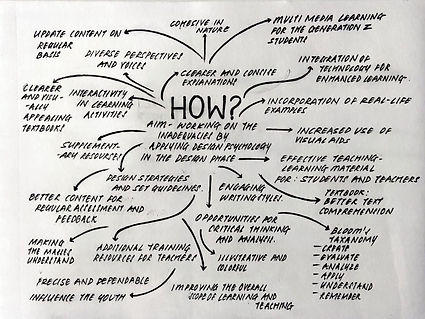 COHESIVE IN
NATURE
MULTI MEDIA LEARNING
FOR THE GENERATION Z
STUDENTS
UPDATE CONTENT ON
REGULAR
BASIS
DIVERSE PERSPECTIVES
AND VOICES
CLEARER AND CONCISE
EXPLANATIONS
INTEGRATION OF
TECHNOLOGY FOR
ENHANCED LEARNING
CLEARER
AND VISU-
ALLY
APPEALING
TEXTBOOKS
INTERACTIVITY
IN LEARNING
ACTIVITIES
HOW?
INCORPORATION OF REAL-LIFE
EXAMPLES
AIM - WORKING ON THE
INADEQUACIES BY
APPLYING DESIGN PSYCHOLOGY
IN THE DESIGN PHASE
INCREASED USE OF
VISUAL AIDS
SUPPLEMENT-
ARY RESOURCES
EFFECTIVE TEACHING-
LEARNING MATERIAL
FOR: STUDENTS AND TEACHERS
DESIGN STRATEGIES
AND SET GUIDELINES
ENGAGING
WRITING STYLES
TEXTBOOK:
BETTER TEXT
COMPREHENSION
BETTER CONTENT FOR
REGULAR ASSESSMENT AND
FEEDBACK
OPPORTUNITIES FOR
CRITICAL THINKING
AND ANALYSIS
BLOOM'S
TAXANOMY
- CREATE
- EVALUATE
- ANALYZE
- APPLY
- UNDERSTAND
- REMEMBER
MAKING
THE
UNDERSTAND
ADDITIONAL TRAINING
RESOURCES FOR TEACHERS
ILLUSTRATIVE AND
COLORFUL
PRECISE AND DEPENDABLE
INFLUENCE THE YOUTH
IMPROVING THE OVERALL
SCOPE OF LEARNING AND
TEACHING